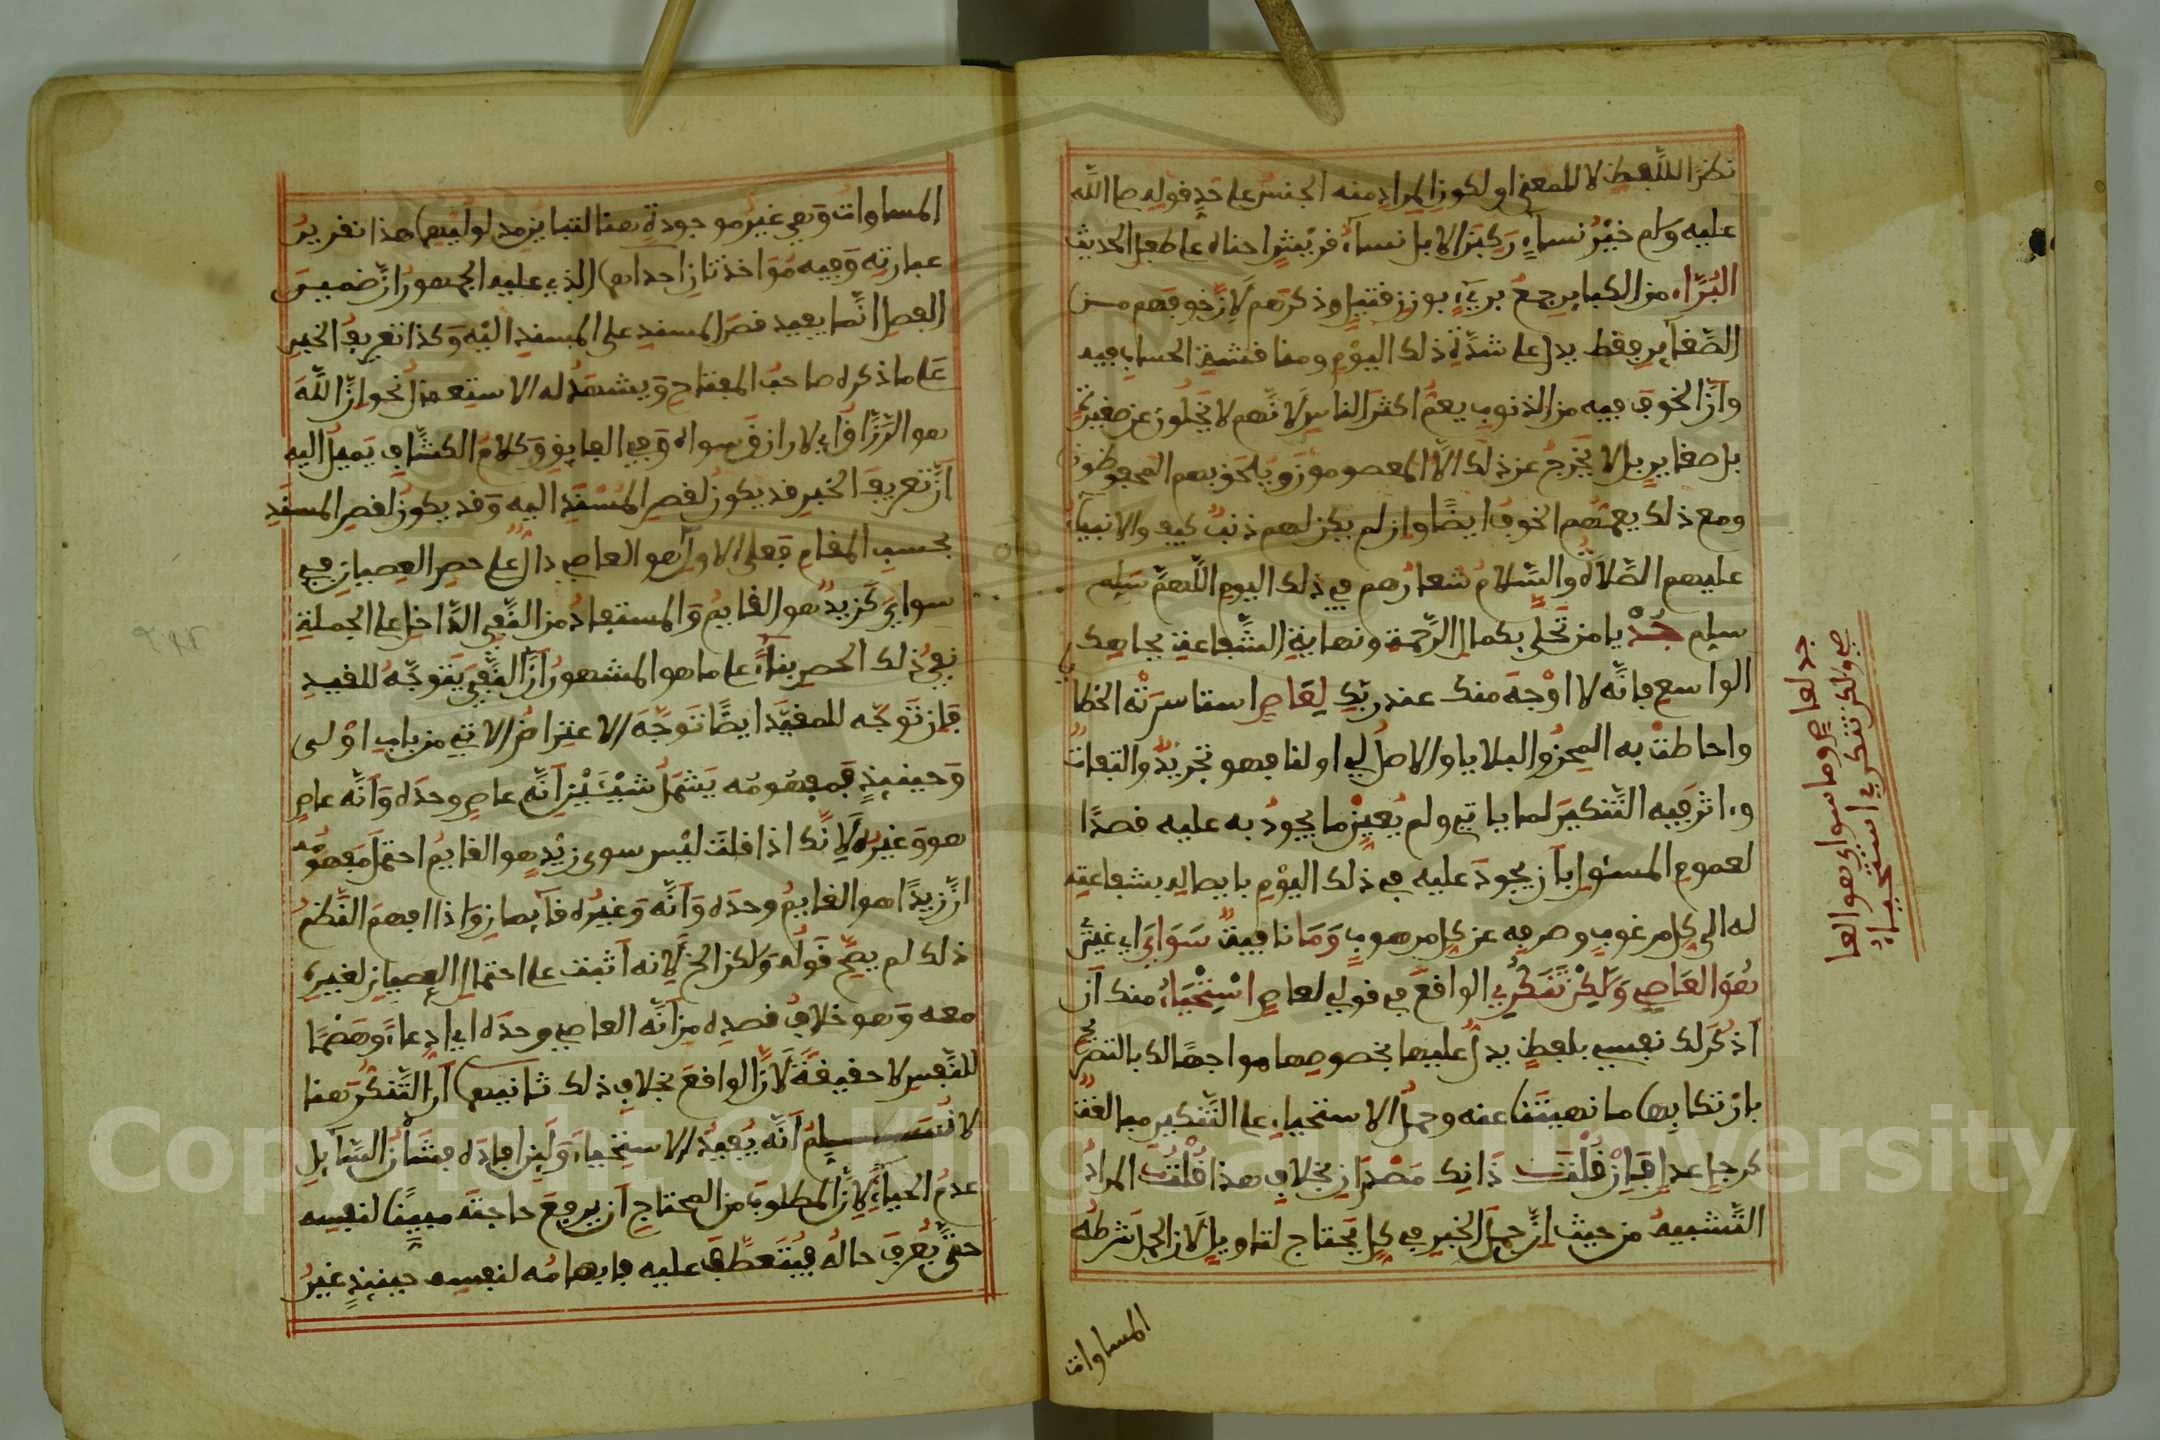 نظرا للفظ لا للمعنى او لكون المراد منه الجنس على حد قوله صلى الله
عليه وسلم خير نساء ركبن الابل نساء قريش احناه على طفل الحديث
البرآء من الكباير جمع بريء بوزن فعيل وذكرهم لان خوفهم من
الصغاير فقط يدل على شدة ذلك اليوم ومناقشة الحساب فيه
وان الخوف فيه من الذنوب يعم اكثر الناس لانهم لا يخلون عن صغيرة
بل صغاير بل لا يخرج عن ذلك الا المعصومون ويلحق بهم المحفوظون
ومع ذلك يعمهم الخوف ايضا وان لم يكن لهم ذنب كيف والانبياء
عليهم الصلاة والسلام شعارهم في ذلك اليوم اللهم سلم
سلم جد يا من تحلى بكمال الرحمة ونهاية الشفاعة بجاهك
الواسع فانه لا اوجه منك عند ربك لعاص استاسرته الخطايا
واحاطت به المحن والبلايا والاصل لي او لنا فهو تجريد والتفات
واثر فيه التنكير لما ياتي ولم يعين ما يجود به عليه قصدا
لعموم المسئول بان يجود عليه في ذلك اليوم بايصاله بشفاعته
له الى كل مرغوب وصرفه عن كل مرهوب وما نافية سواي اي غيري
هو العاصي ولكن تنكري الواقع في قولي لعاص استحياء منك ان
اذكر لك نفسي بلفظ يدل عليها بخصوصها مواجها لك بالتصريح
بارتكابها ما نهيتنا عنه وحمل الاستحياء على التنكير مبالغة
كرجل عدل فان قلت ذانك مصدران بخلاف هذا قلت المراد
التشبيه من حيث ان حمل الخبر في كل يحتاج لتاويل لان الحمل شرطه
المساوات
جد لعاص وما سواي هو العا
صي ولكن تنكري استحياء
المساوات وهي غير موجودة هنا لتباين مدلوليهما هذا تقرير
عبارته وفيه مؤاخذتان احداهما الذي عليه الجمهور ان ضمير
الفصل انما يفيد قصر المسند على المسند اليه وكذا تعريف الخبر
على ما ذكره صاحب المفتاح ويشهد له الاستعمال نحو ان الله
هو الرزاق اي لا رازق سواه وفي الفايق وكلام الكشاف يميل اليه
ان تعريف الخبر قد يكون لقصر المسند اليه وقد يكون لقصر المسند
بحسب المقام فعلى الاول هو العاصي دال على حصر العصيان في
سواي كزيد هو القايم والمستفاد من النفي الداخل على الجملة
نفي ذلك الحصر بناء على ما هو المشهور ان النفي يتوجه للقيد
فان توجه للمقيد ايضا توجه الاعتراض الاتي من باب اولى
وحينئذ فمفهومه يشمل شيئين انه عاص وحده وانه عاص
هو وغيره لانك اذا قلت ليس سوى زيد هو القايم احتمل مفهومه
ان زيدا هو القايم وحده وانه وغيره قايمان واذا افهم النظم
ذلك لم يصح قوله ولكن الخ لانه اثبت على احتمال العصيان لغيره
معه وهو خلاف قصده من انه العاصي وحده اي ادعاء وهضما
للنفس لا حقيقة لان الواقع بخلاف ذلك ثانيهما ان التنكر هنا
لا نسلم انه يفيد الاستحياء ولئن افاده فشان السايل
عدم الحياء لان المطلوب من المحتاج ان يرفع حاجته مبينا لنفسه
حتى يعرف حاله فيتعطف عليه فابهامه لنفسه حينئذ غير